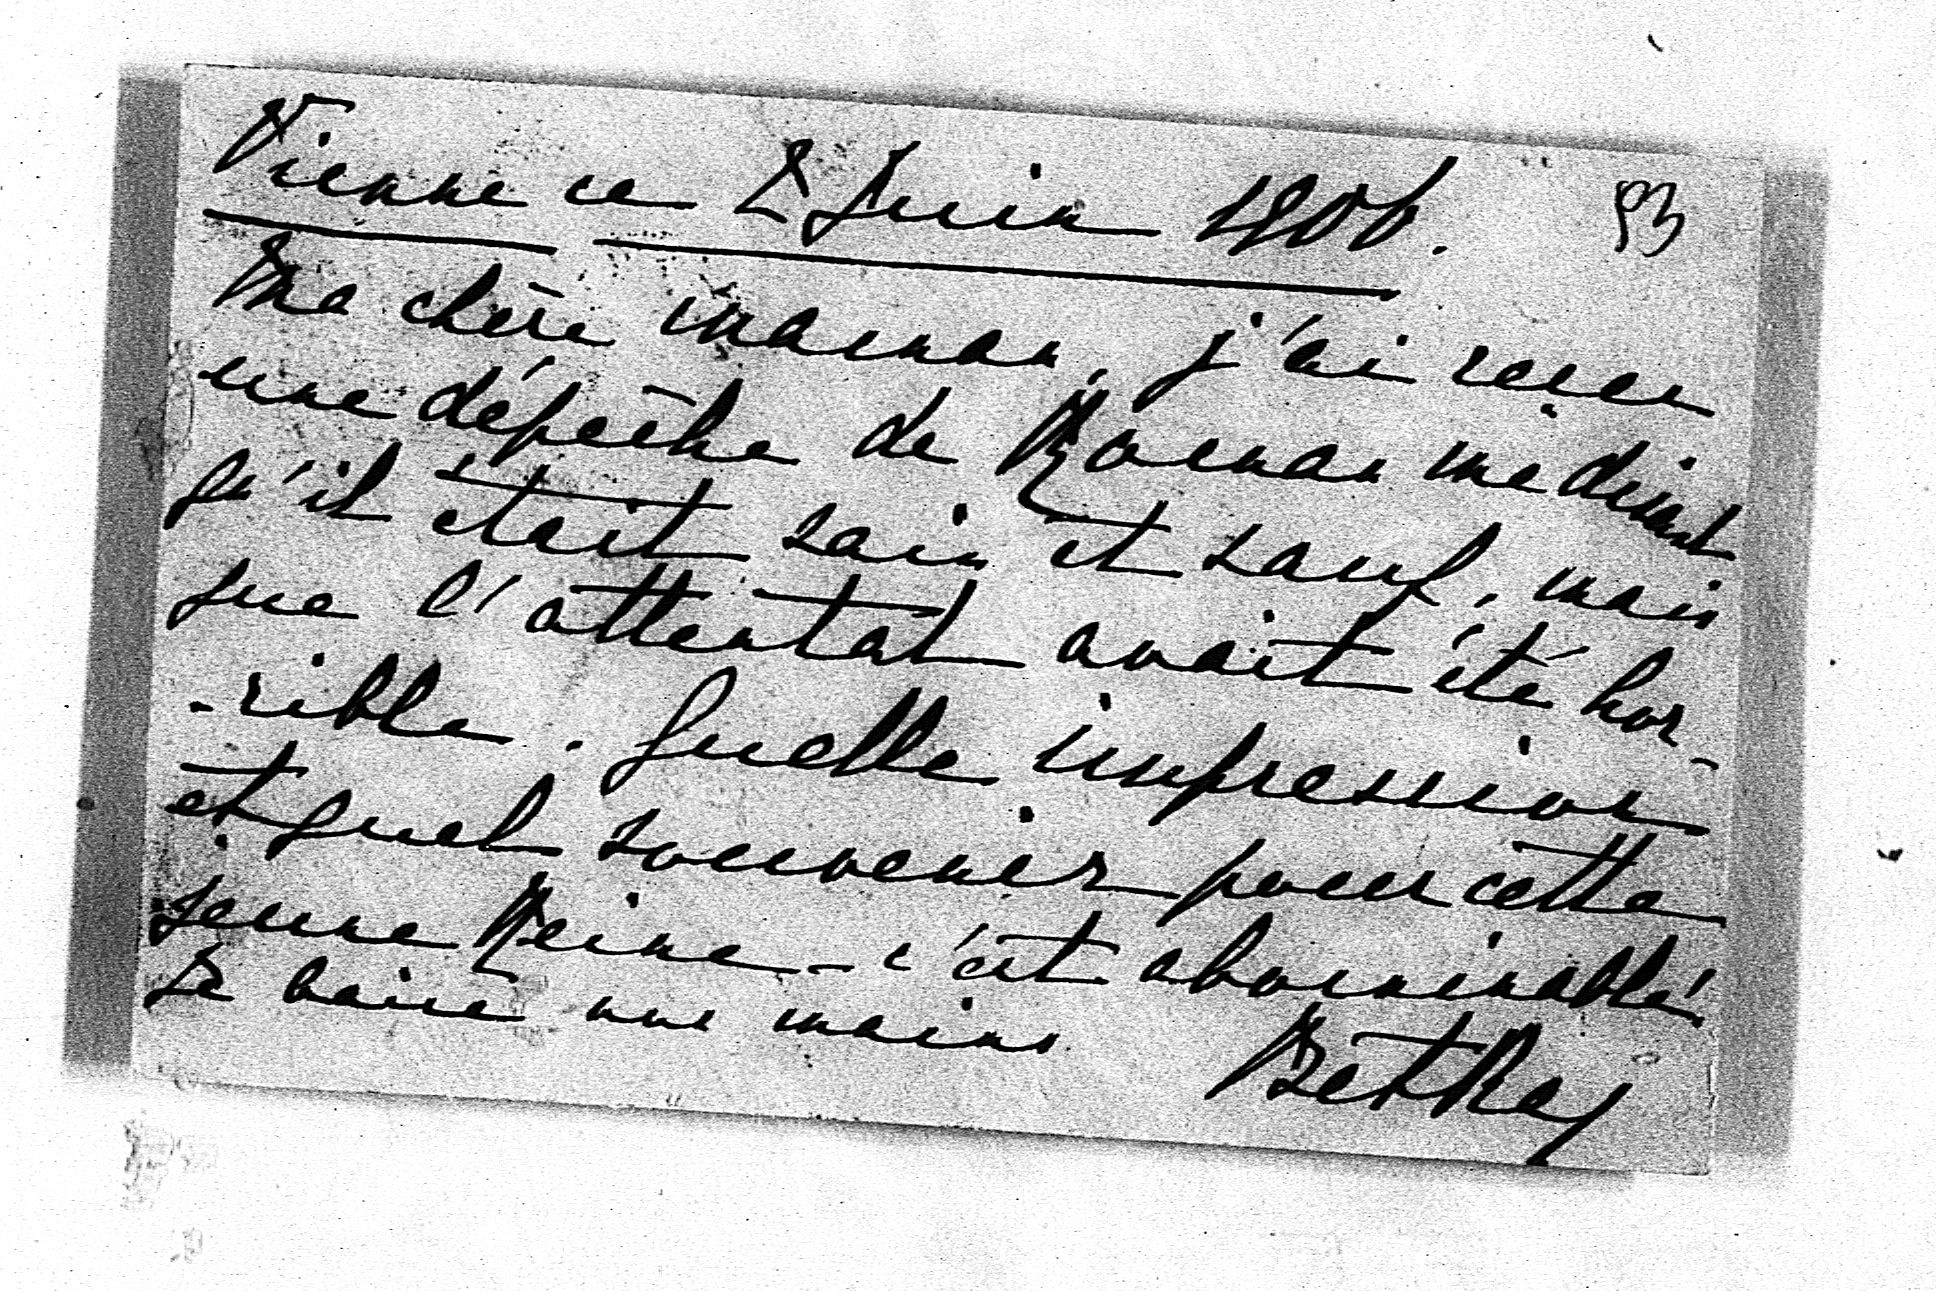 Vienne ce 2 Juin 1906.
93
Ma chère maman, j'ai recu
une dépêche de Roman me disant
qu'il était sain et sauf, mais
que l'attentat avait été hor-
-rible. Quelle impression
et quel souvenir pour cette
jeune Reine - c'est abominable!
Je baise vos mains